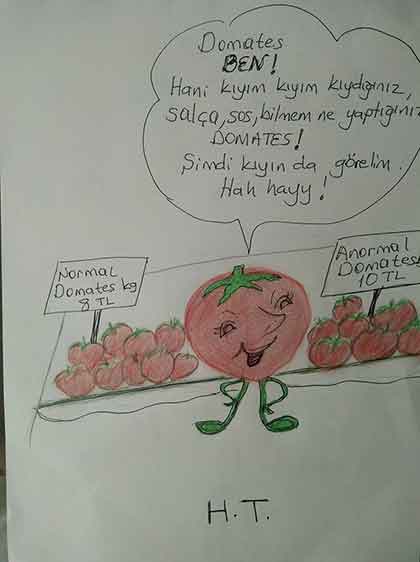 Domates
BEN!
Hani kıyım kıyım kıydığınız,
salça, sos, bilmem ne yaptığınız
DOMATES!
Şimdi kıyın da görelim.
Hah hayy!
Normal
Domates kg
8 TL
Anormal
Domates
10 TL
H.T.